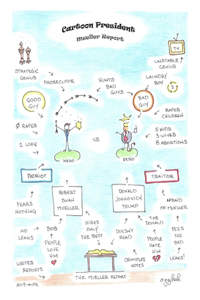 Cartoon President
Mueller Report
STRATEGIC
GENIUS
PROSECUTOR
HUNTS
BAD
GUYS
LAUNDRY
BOY
UNSTABLE
GENIUS
TV
GOOD
GUY
BAD
GUY
0 RAPES
1 WIFE
VS.
HERO
ZERO
5 KIDS
3 WIVES
8 ABORTIONS
PATRIOT
TRAITOR
FEARS
NOTHING
ROBERT
SWAN
MUELLER
DONALD
JOHNOVICH
TRUMP
AFRAID
OF MUELLER
NO
LEAKS
BOB
PEOPLE
LOVE
HIM
HIRES
ONLY
THE BEST
DOESN'T
READ
THE
DONALD
PEOPLE
HATE
HIM
PEES
THE
BED
WRITES
REPORTS
CRUMPLES
NOTES
LEAKS!
THE MUELLER REPORT